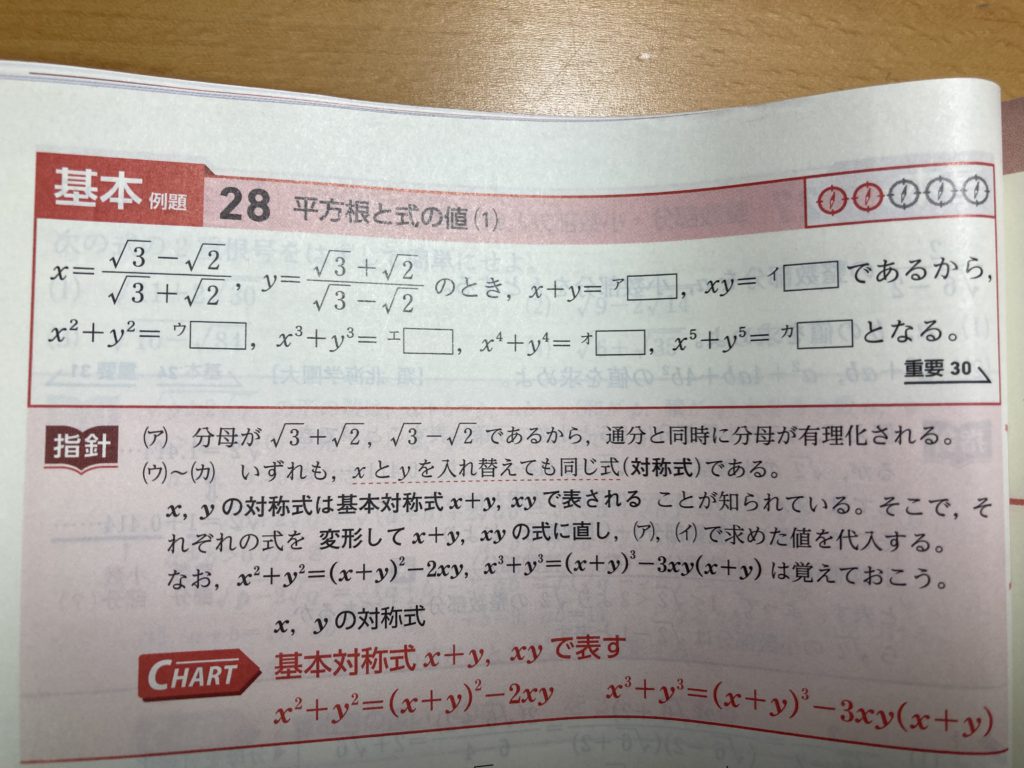 基本 例題 28 平方根と式の値(1)
x=(√3−√2)/(√3+√2), y=(√3+√2)/(√3−√2) のとき, x+y=ア□, xy=イ□であるから,
x²+y²=ウ□, x³+y³=エ□, x⁴+y⁴=オ□, x⁵+y⁵=カ□となる。
重要 30
指針 (ア) 分母が √3+√2, √3−√2 であるから, 通分と同時に分母が有理化される。
(ウ)~(カ) いずれも, xとyを入れ替えても同じ式(対称式)である。
x, y の対称式は基本対称式 x+y, xy で表される ことが知られている。そこで, そ
れぞれの式を 変形して x+y, xy の式に直し, (ア), (イ)で求めた値を代入する。
なお, x²+y²=(x+y)²−2xy, x³+y³=(x+y)³−3xy(x+y) は覚えておこう。
x, y の対称式
CHART 基本対称式 x+y, xy で表す
x²+y²=(x+y)²−2xy x³+y³=(x+y)³−3xy(x+y)